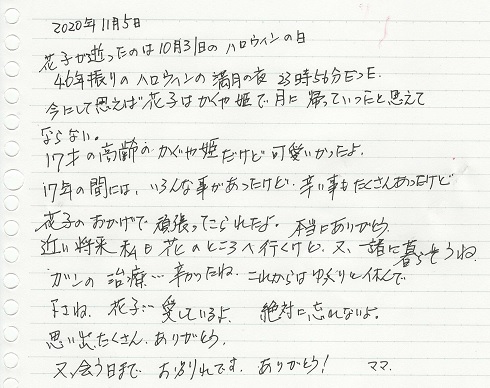 2020年11月5日
花子が逝ったのは10月31日のハロウィンの日
46年振りのハロウィンの満月の夜 23時56分だった.
今にして思えば花子はかぐや姫で月に帰っていったと思えて
ならない。
17才の高齢のかぐや姫だけど可愛いかったよ.
17年の間には、いろんな事があったけど.辛い事もたくさんあったけど
花子のおかげで頑張ってこられたよ.本当にありがとう.
近い将来私も花のところへ行くけど、又、一緒に暮らそうね.
ガンの治療…辛かったね.これからはゆっくりと休んで
下さね.花子…愛しているよ.絶対に忘れないよ。
思い出たくさん.ありがとう.
又、会う日まで お別れです.ありがとう! ママ.